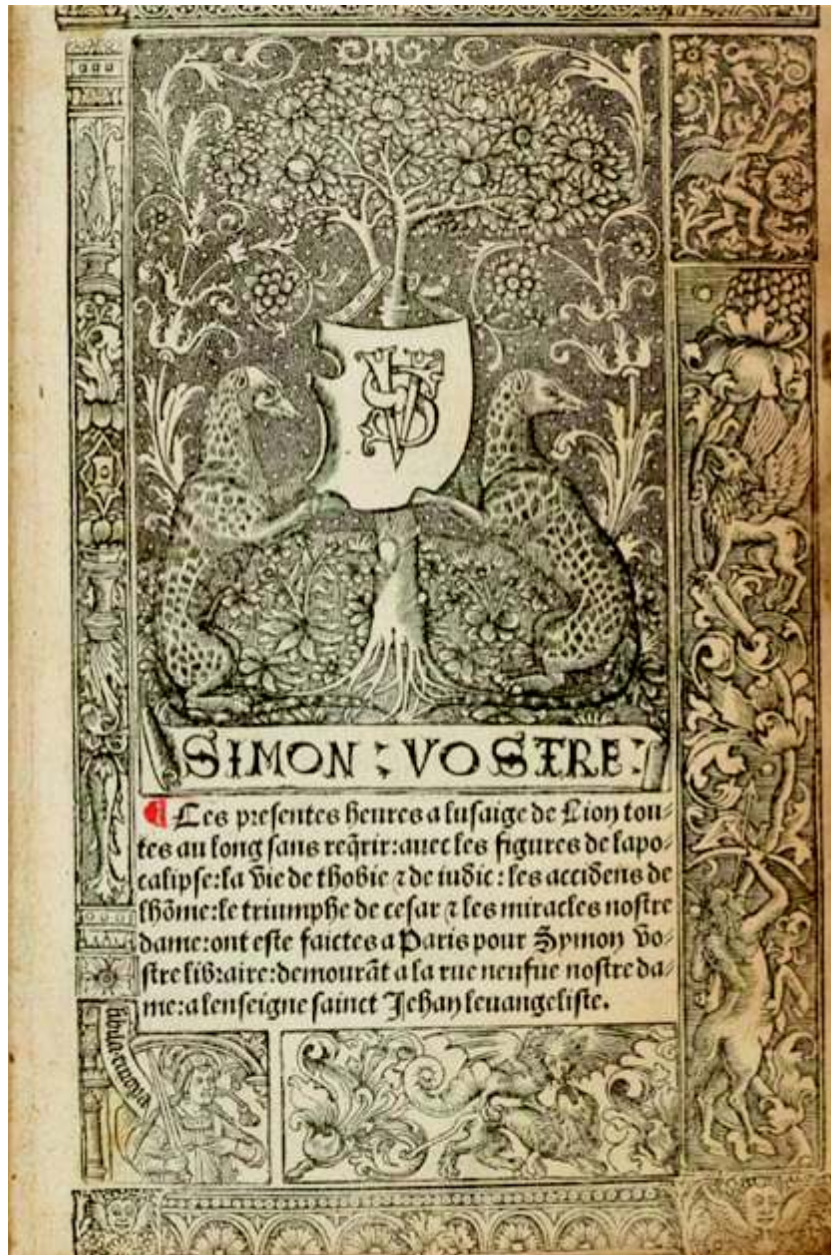 SIMON : VOSTRE :
¶ Les presentes heures a lusaige de Lion tou⸗
tes au long sans reqrir: auec les figures de lapo⸗
calipse: la vie de thobie ⁊ de iudic: les accidens de
lhõme: le triumphe de cesar ⁊ les miracles nostre
dame: ont este faictes a Paris pour Symon vo⸗
stre libraire: demourãt a la rue neufue nostre da⸗
me: a lenseigne sainct Jehan leuangeliste.